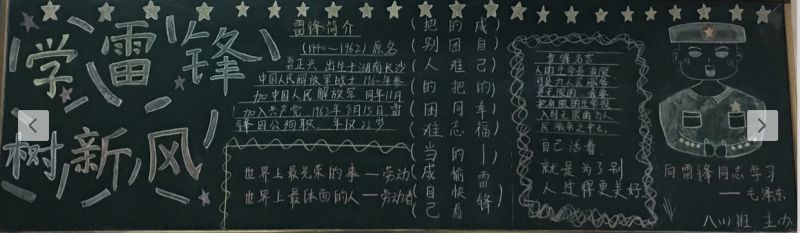 学雷锋
树新风
雷锋简介
(1940~1962) 原名
雷正兴 出生于湖南长沙
中国人民解放军战士 1960年参
加中国人民解放军 同年11月
加入共产党 1962年8月15日雷
锋因公殉职 年仅22岁
世界上最光荣的事—劳动
世界上最体面的人—劳动者
(把别人的困难当成自己
的困难 把同志的愉快看
成自己的幸福—雷锋)
雷锋名言
人的生命是有限
的 为人民服务
是无限的 我要
把有限的生命投
入到无限的为人
民服务之中去。
自己活着
就是为了别
人过得更美好。
向雷锋同志学习
—毛泽东
八(1)班 主办